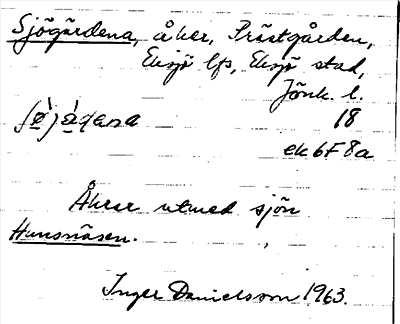 Sjögärdena, åker, Prästgården,
Eksjö lfs, Eksjö stad,
Jönk. l.
18
ek 6F 8a
Åkrar utmed sjön
Hunsnäsen.
Inger Danielsson 1963.